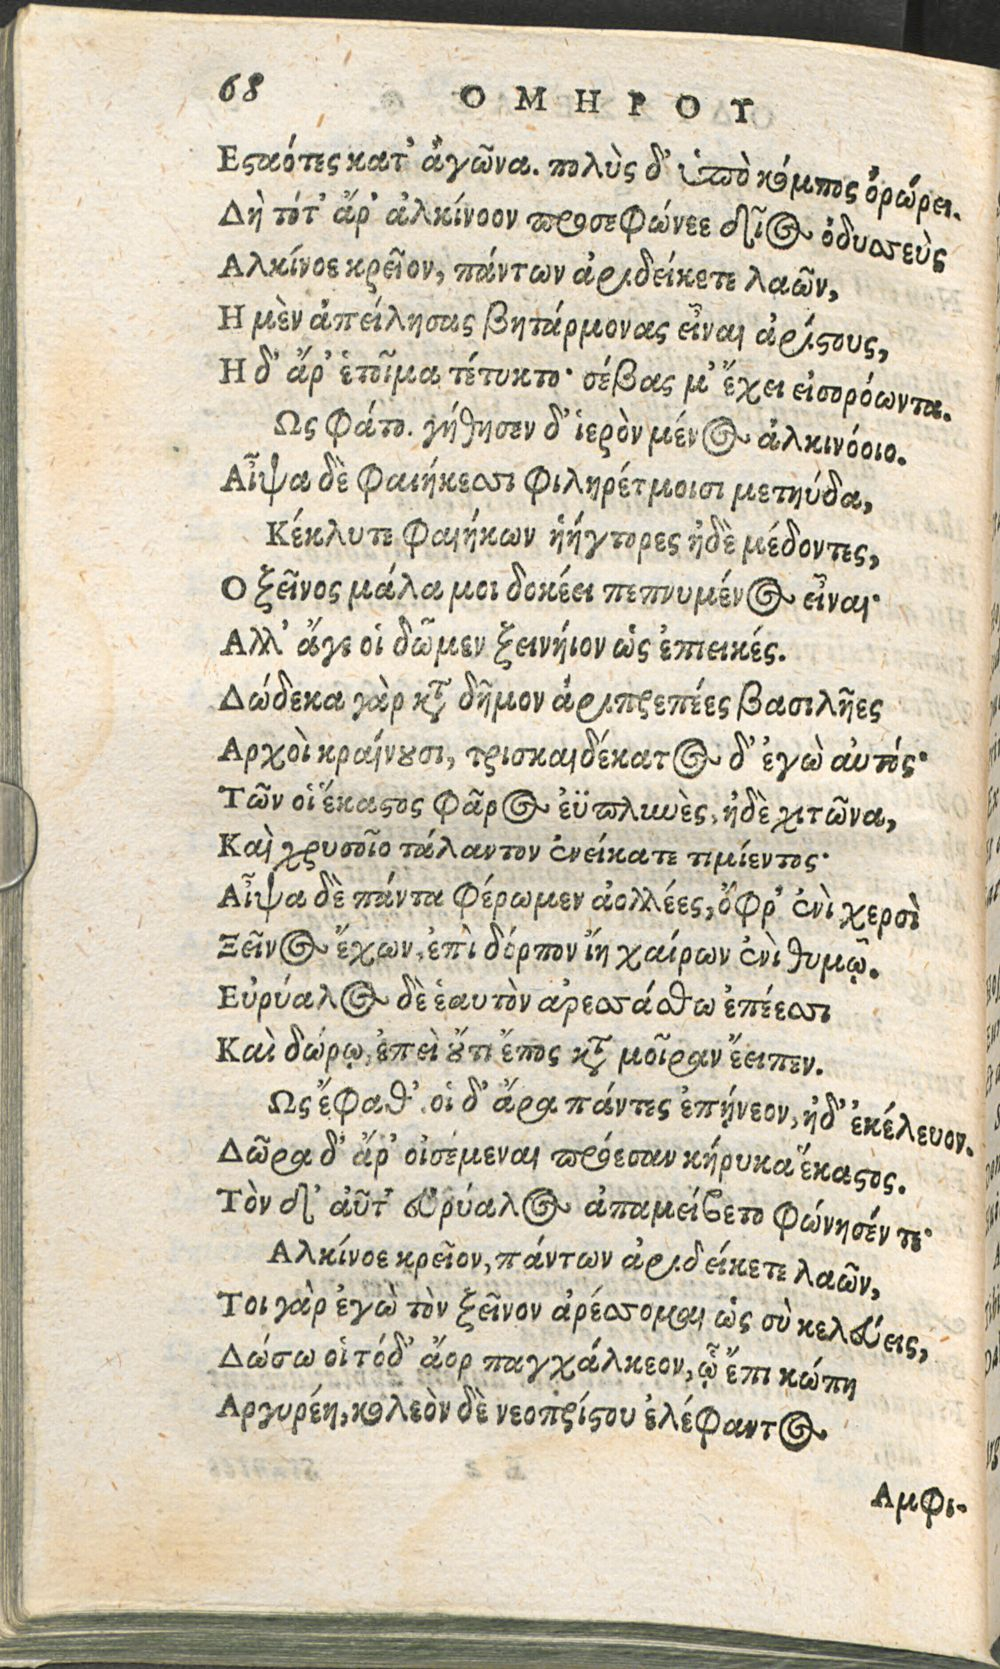 68 ΟΜΗΡΟΥ
Εςαότες κατ' ἀγῶνα. πολὺς δ' ὑπὸ κόμπος ὀρώρει.
Δὴ τότ' ἄρ' ἀλκίνοον προσεφώνεε δῖος ὀδυσσεὺς
Αλκίνοε κρεῖον, πάντων ἀριδείκετε λαῶν,
Η μὲν ἀπείλησας βητάρμονας εἶναι ἀρίςους,
Η δ' ἄρ' ἑτοῖμα τέτυκτο· σέβας μ' ἔχει εἰσορόωντα.
Ως φάτο. γήθησεν δ' ἱερὸν μένος ἀλκινόοιο.
Αἶψα δὲ φαιήκεσσι φιληρέτμοισι μετηύδα,
Κέκλυτε φαιήκων ἡήγτορες ἠδὲ μέδοντες,
Ο ξεῖνος μάλα μοι δοκέει πεπνυμένος εἶναι·
Αλλ' ἄγε οἱ δῶμεν ξεινήιον ὡς ἐπιεικές.
Δώδεκα γὰρ κτ δῆμον ἀριπρεπέες βασιλῆες
Αρχοὶ κραίνουσι, τρισκαιδέκατος δ' ἐγὼ αὐτός·
Τῶν οἱ ἕκαςος φᾶρος ἐϋπλυνὲς, ἠδὲ χιτῶνα,
Καὶ χρυσοῖο τάλαντον ἐνείκατε τιμίεντος·
Αἶψα δὲ πάντα φέρωμεν ἀολλέες, ὄφρ' ἐνὶ χερσὶ
Ξεῖνος ἔχων, ἐπὶ δόρπον ἴῃ χαίρων ἐνὶ θυμῷ.
Εὐρύαλος δὲ ἑαυτὸν ἀρεσσάσθω ἐπέεσσι
Καὶ δώρῳ, ἐπεὶ οὔτι ἔπος κτ μοῖραν ἔειπεν.
Ως ἔφαθ'. οἱ δ' ἄρα πάντες ἐπῄνεον, ἠδ' ἐκέλευον.
Δῶρα δ' ἄρ' οἰσέμεναι πρόεσαν κήρυκα ἕκαςος.
Τὸν δ' αὖτ' εὐρύαλος ἀπαμείβετο φώνησέν τε·
Αλκίνοε κρεῖον, πάντων ἀριδείκετε λαῶν,
Τοι γὰρ ἐγὼ τὸν ξεῖνον ἀρέσσομαι ὡς σὺ κελεύεις,
Δώσω οἱ τόδ' ἄορ παγχάλκεον, ᾧ ἔπι κώπη
Αργυρέη, κολεὸν δὲ νεοπρίςου ἐλέφαντος
Αμφι-